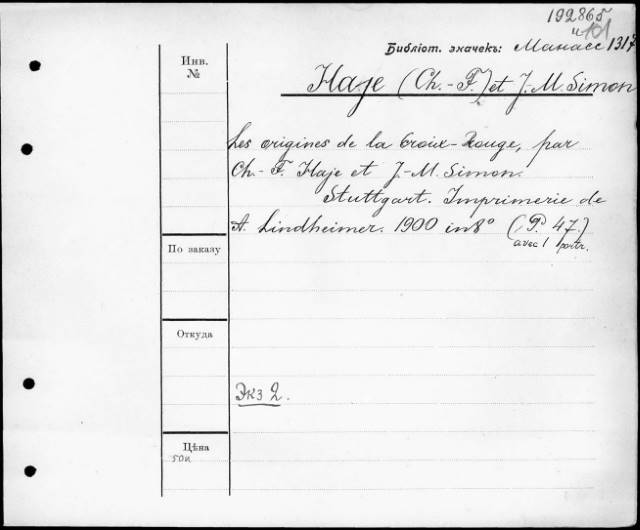 192865
и 101
Библіот. значекъ: Манасс 1317
Haje (Ch.-F.) et J.-M. Simon
Инв.
№
Les origines de la Croix-Rouge, par
Ch.-F. Haje et J.-M. Simon.
Stuttgart. Imprimerie de
A. Lindheimer. 1900 in 8° (P. 47.)
avec 1 portr.
По заказу
Откуда
Экз 2.
Цѣна
50к